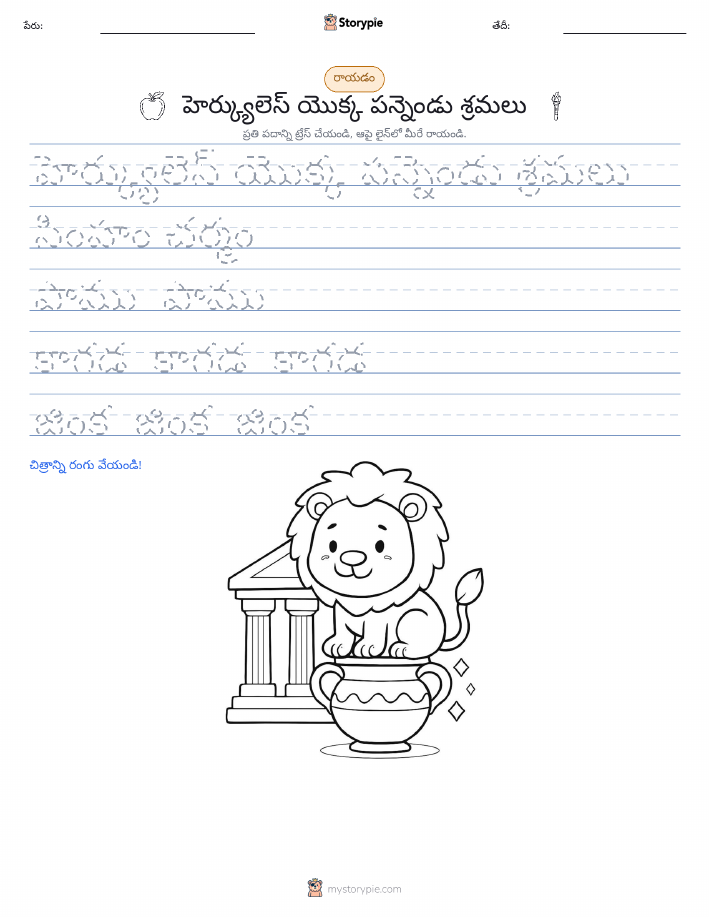 పేరు:
Storypie
తేదీ:
రాయడం
హెర్క్యులెస్ యొక్క పన్నెండు శ్రమలు
ప్రతి పదాన్ని ట్రేస్ చేయండి, ఆపై లైన్‌లో మీరే రాయండి.
హెర్క్యులెస్ యొక్క పన్నెండు శ్రమలు
సింహం చర్మం
పాము పాము
కాగడ కాగడ కాగడ
జింక జింక జింక
చిత్రాన్ని రంగు వేయండి!
mystorypie.com